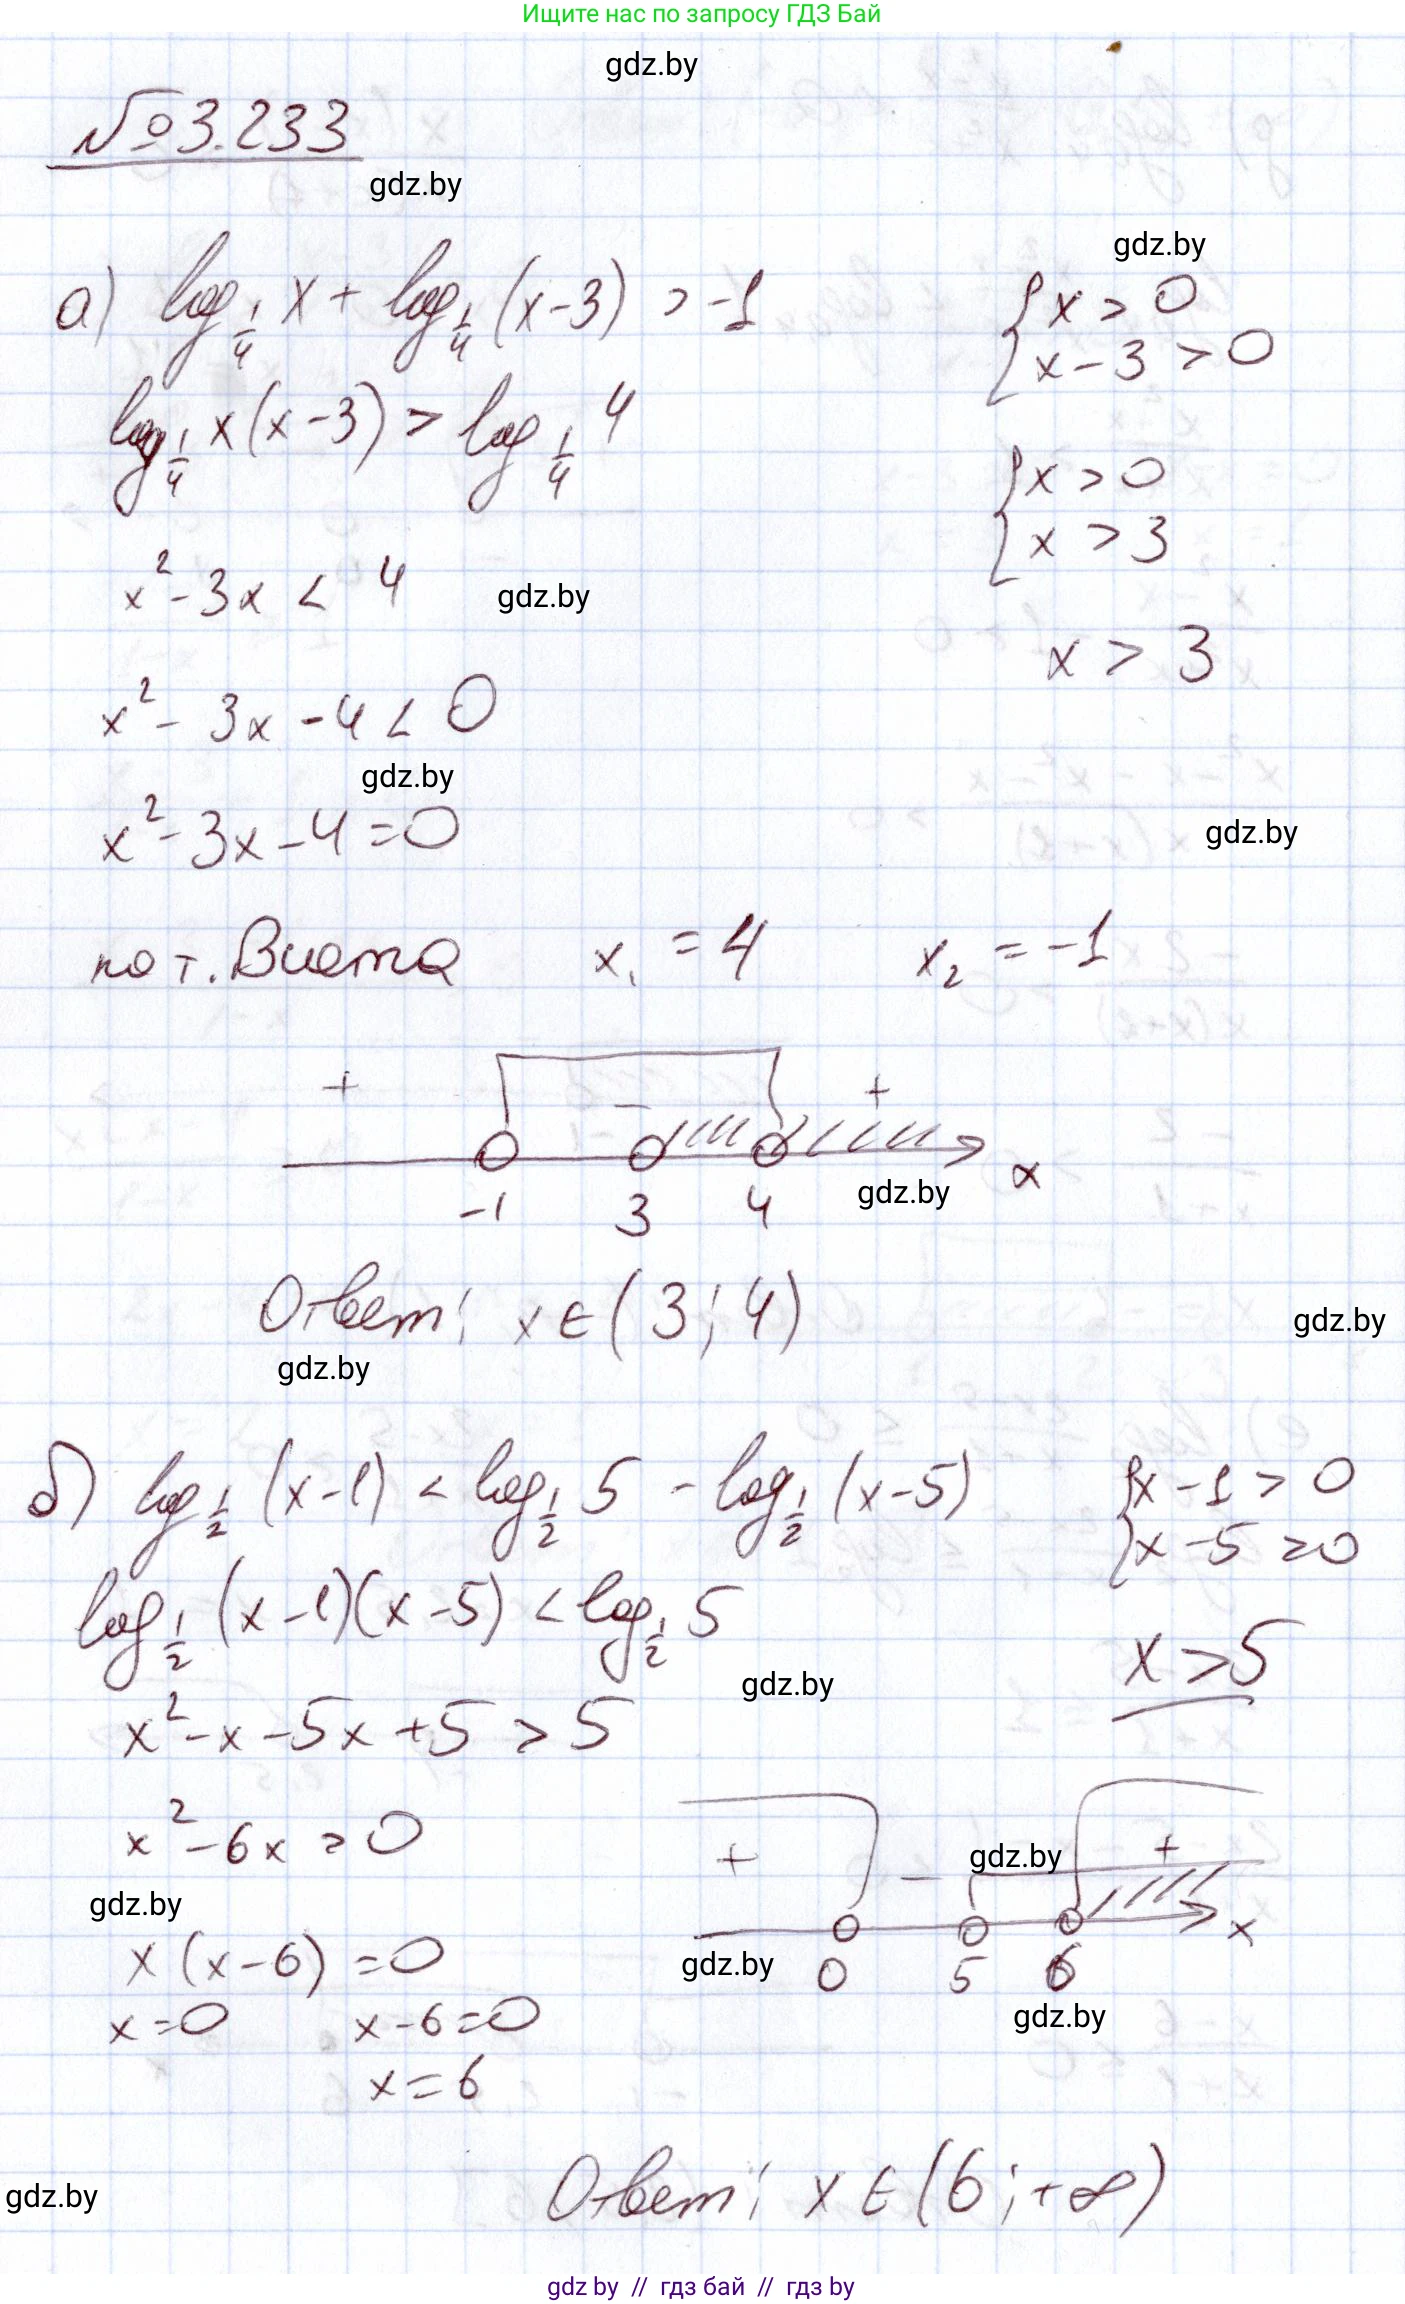 Ищите нас по запросу ГДЗ Бай
gdz.by
№3.233
gdz.by
gdz.by
а) log_{1/4} x + log_{1/4} (x-3) > -1
{ x > 0
x - 3 > 0
log_{1/4} x(x-3) > log_{1/4} 4
{ x > 0
x > 3
x² - 3x < 4
gdz.by
x > 3
x² - 3x - 4 < 0
gdz.by
x² - 3x - 4 = 0
gdz.by
по т. Виета x₁ = 4 x₂ = -1
+ - +
-1 3 4 x
gdz.by
Ответ: x ∈ (3; 4)
gdz.by
gdz.by
б) log_{1/2} (x-1) < log_{1/2} 5 - log_{1/2} (x-5)
{ x - 1 > 0
x - 5 > 0
log_{1/2} (x-1)(x-5) < log_{1/2} 5
x > 5
gdz.by
x² - x - 5x + 5 > 5
x² - 6x > 0
+ - +
gdz.by
gdz.by
x (x-6) = 0
0 5 6 x
gdz.by
x = 0 x - 6 = 0
gdz.by
x = 6
Ответ: x ∈ (6; +∞)
gdz.by
gdz by // гдз бай // гдз by